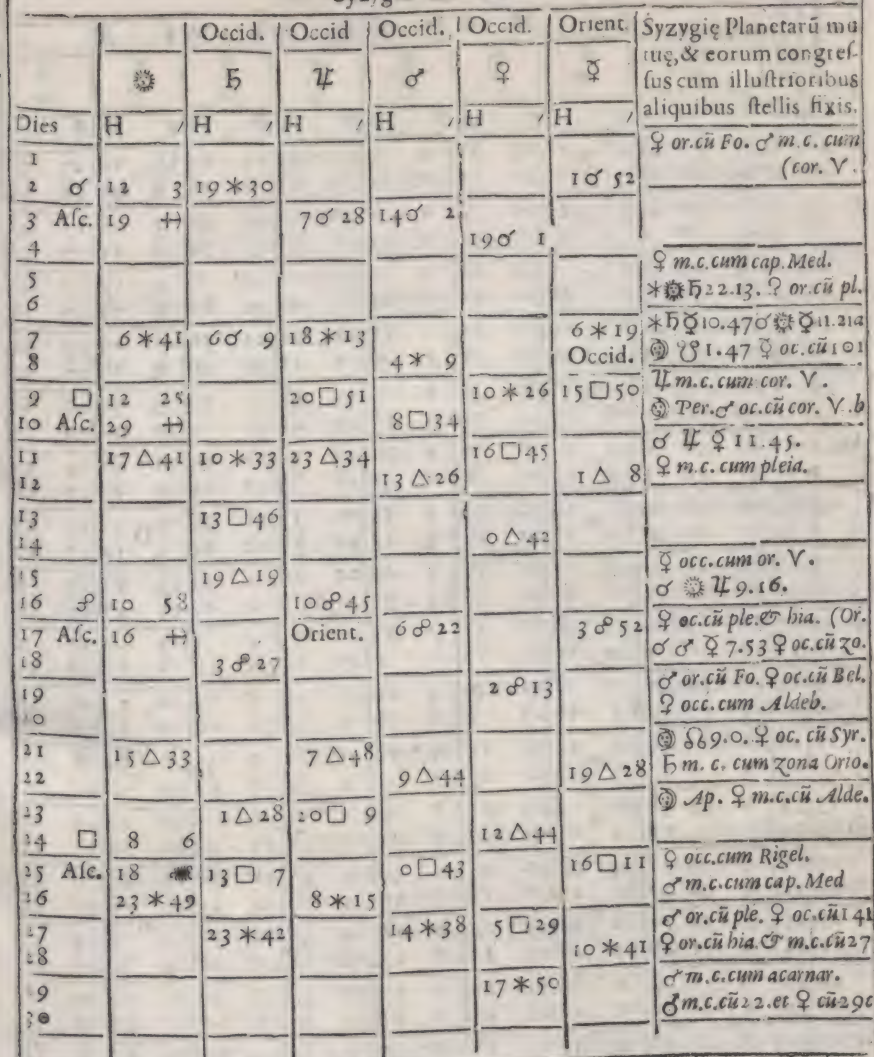 Occid. Occid Occid. Occid. Orient. Syzygię Planetarũ mu
☉ ♄ ♃ ♂ ♀ ☿ tuę, & eorum congreſ
ſus cum illuſtrioribus
Dies H ′ H ′ H ′ H ′ H ′ H ′ aliquibus ſtellis fixis.
1 ♀ or.cũ Fo. ♂ m.c. cum
2 ☌ 12 3 19 ⚹ 30 1 ☌ 52 (cor. ♈.
3 Aſc. 19 7 ☌ 28 14 ☌ 2
4 19 ☌ 1
5 ♀ m.c.cum cap.Med.
6 ⚹ ☉ ♄ 22.13. ♀ or.cũ pl.
7 6 ⚹ 41 6 ☌ 9 18 ⚹ 13 6 ⚹ 19 ⚹ ♄ ☿ 10.47 ☌ ☉ ☿ 11.21
8 4 ⚹ 9 Occid. ☋ 1.47 ☿ oc.cũ
9 □ 12 25 20 □ 51 10 ⚹ 26 15 □ 50 ♃ m.c. cum cor. ♈.
10 Aſc. 29 8 □ 34 Per. ♂ oc.cũ cor. ♈.
11 17 △ 41 10 ⚹ 33 23 △ 34 16 □ 45 ☌ ♃ ☿ 11.45.
12 13 △ 26 1 △ 8 ♀ m.c. cum pleia.
13 13 □ 46
14 0 △ 42
15 19 △ 19 ☿ occ.cum or. ♈.
16 ☍ 10 58 10 ☍ 45 ☌ ☉ ♃ 9.16.
17 Aſc. 16 Orient. 6 ☍ 22 3 ☍ 52 ♀ oc.cũ ple.& hia. (Or.
18 3 ☍ 27 ☌ ♂ ☿ 7.53 ♀ oc.cũ zo.
19 2 ☍ 13 ♂ or.cũ Fo. ♀ oc.cũ Bel.
20 ♀ occ.cum Aldeb.
21 15 △ 33 7 △ 48 ☊ 9.0. ♀ oc. cũ Syr.
22 9 △ 44 19 △ 28 ♄ m. c. cum zona Orio.
23 1 △ 28 20 □ 9 Ap. ♀ m.c.cũ Alde.
24 □ 8 6 12 △ 44
25 Aſc. 18 13 □ 7 0 □ 43 16 □ 11 ♀ occ.cum Rigel.
26 23 ⚹ 49 8 ⚹ 15 ♂ m.c.cum cap.Med
27 23 ⚹ 42 14 ⚹ 38 5 □ 29 ♂ or.cũ ple. ♀ oc.cũ
28 10 ⚹ 41 ♀ or.cũ hia.& m.c.cũ 27
29 17 ⚹ 50 ♂ m.c.cum acarnar.
30 ♂ m.c.cũ 22.et ♀ cũ